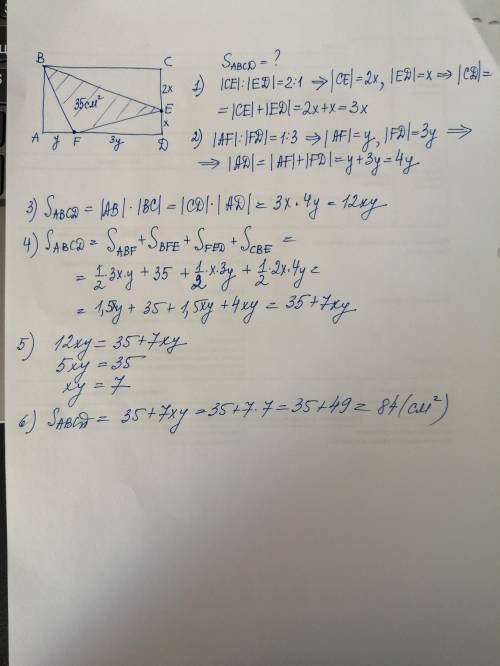 B C
2x
35см²
E
x
A y F 3y D
S_ABCD = ?
1) |CE|:|ED|=2:1 ⇒ |CE|=2x, |ED|=x ⇒ |CD|=
= |CE|+|ED|=2x+x=3x
2) |AF|:|FD|=1:3 ⇒ |AF|=y, |FD|=3y ⇒
⇒ |AD|=|AF|+|FD|=y+3y=4y
3) S_ABCD = |AB|·|BC|=|CD|·|AD|=3x·4y=12xy
4) S_ABCD = S_ABF + S_BFE + S_FED + S_CBE =
= 1/2·3x·y + 35 + 1/2·x·3y + 1/2·2x·4y=
= 1,5xy + 35 + 1,5xy + 4xy = 35+7xy
5) 12xy = 35+7xy
5xy = 35
xy = 7
6) S_ABCD = 35+7xy = 35+7·7 = 35+49 = 84 (см²)